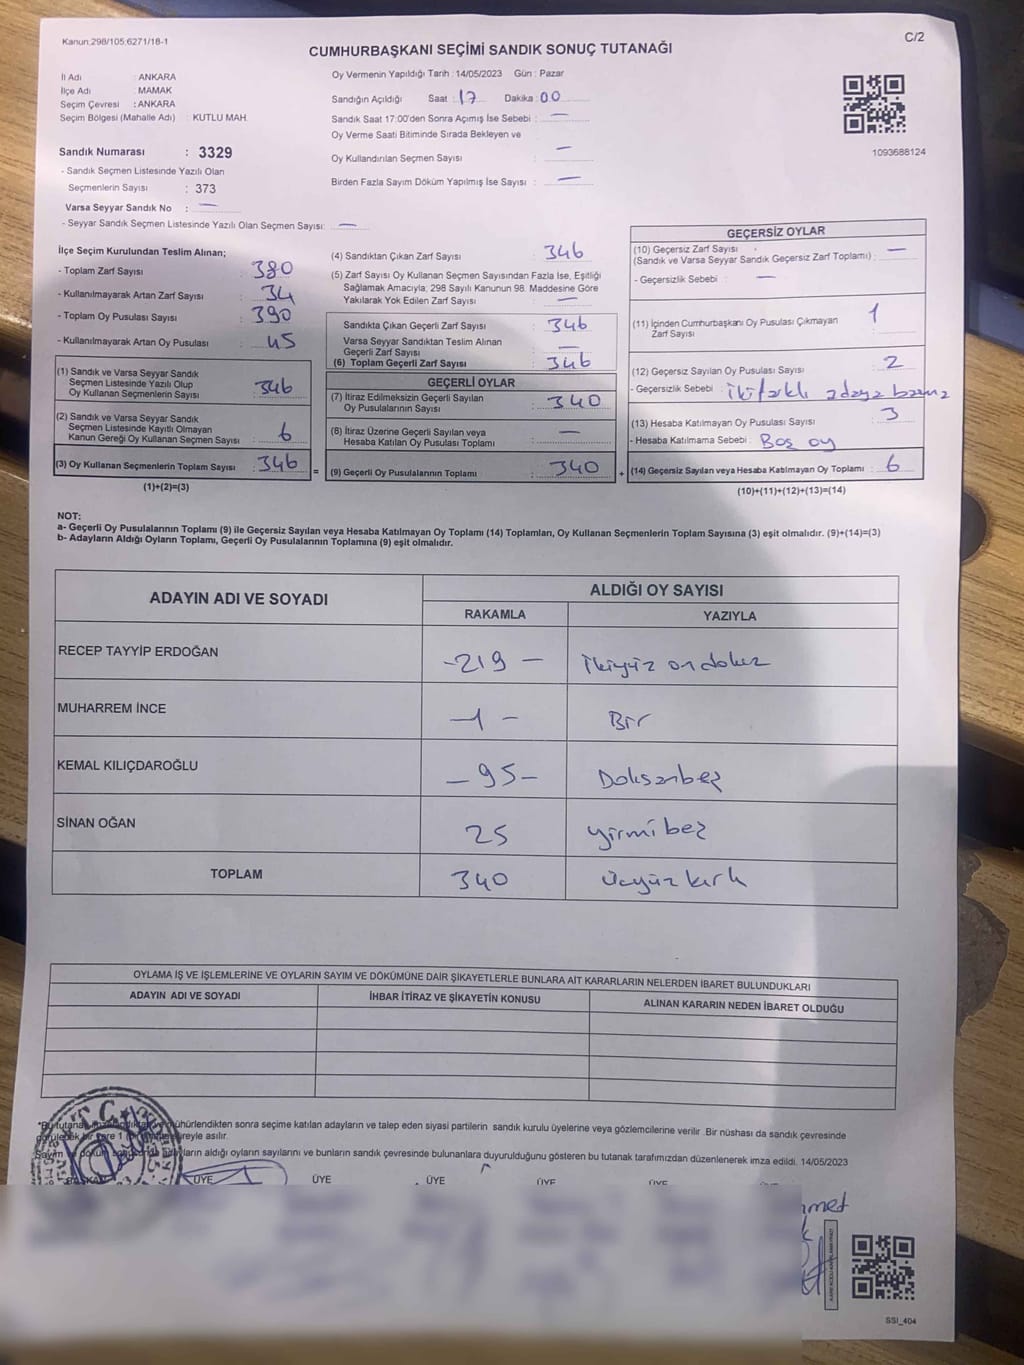 Kanun:298/105;6271/18-1
C/2
CUMHURBAŞKANI SEÇİMİ SANDIK SONUÇ TUTANAĞI
İl Adı : ANKARA
İlçe Adı : MAMAK
Seçim Çevresi : ANKARA
Seçim Bölgesi (Mahalle Adı) : KUTLU MAH.
Oy Vermenin Yapıldığı Tarih : 14/05/2023 Gün : Pazar
Sandığın Açıldığı Saat : 17 Dakika : 00
Sandık Saat 17:00'den Sonra Açımış İse Sebebi : —
Oy Verme Saati Bitiminde Sırada Bekleyen ve
Oy Kullandırılan Seçmen Sayısı : —
Birden Fazla Sayım Döküm Yapılmış İse Sayısı : —
1093688124
Sandık Numarası : 3329
- Sandık Seçmen Listesinde Yazılı Olan
Seçmenlerin Sayısı : 373
Varsa Seyyar Sandık No : —
- Seyyar Sandık Seçmen Listesinde Yazılı Olan Seçmen Sayısı: —
İlçe Seçim Kurulundan Teslim Alınan;
- Toplam Zarf Sayısı : 380
- Kullanılmayarak Artan Zarf Sayısı : 34
- Toplam Oy Pusulası Sayısı : 390
- Kullanılmayarak Artan Oy Pusulası : 45
(1) Sandık ve Varsa Seyyar Sandık
Seçmen Listesinde Yazılı Olup
Oy Kullanan Seçmenlerin Sayısı : 346
(2) Sandık ve Varsa Seyyar Sandık
Seçmen Listesinde Kayıtlı Olmayan
Kanun Gereği Oy Kullanan Seçmen Sayısı : 6
(3) Oy Kullanan Seçmenlerin Toplam Sayısı : 346
(1)+(2)=(3)
(4) Sandıktan Çıkan Zarf Sayısı : 346
(5) Zarf Sayısı Oy Kullanan Seçmen Sayısından Fazla İse, Eşitliği
Sağlamak Amacıyla; 298 Sayılı Kanunun 98. Maddesine Göre
Yakılarak Yok Edilen Zarf Sayısı : —
Sandıkta Çıkan Geçerli Zarf Sayısı : 346
Varsa Seyyar Sandıktan Teslim Alınan
Geçerli Zarf Sayısı : —
(6) Toplam Geçerli Zarf Sayısı : 346
GEÇERLİ OYLAR
(7) İtiraz Edilmeksizin Geçerli Sayılan
Oy Pusulalarının Sayısı : 340
(8) İtiraz Üzerine Geçerli Sayılan veya
Hesaba Katılan Oy Pusulası Toplamı : —
= (9) Geçerli Oy Pusulalarının Toplamı : 340 +
GEÇERSİZ OYLAR
(10) Geçersiz Zarf Sayısı
(Sandık ve Varsa Seyyar Sandık Geçersiz Zarf Toplamı) : —
- Geçersizlik Sebebi : —
(11) İçinden Cumhurbaşkanı Oy Pusulası Çıkmayan
Zarf Sayısı : 1
(12) Geçersiz Sayılan Oy Pusulası Sayısı : 2
- Geçersizlik Sebebi : iki farklı adaya basma
(13) Hesaba Katılmayan Oy Pusulası Sayısı : 3
- Hesaba Katılmama Sebebi : Boş oy
(14) Geçersiz Sayılan veya Hesaba Katılmayan Oy Toplamı : 6
(10)+(11)+(12)+(13)=(14)
NOT:
a- Geçerli Oy Pusulalarının Toplamı (9) ile Geçersiz Sayılan veya Hesaba Katılmayan Oy Toplamı (14) Toplamları, Oy Kullanan Seçmenlerin Toplam Sayısına (3) eşit olmalıdır. (9)+(14)=(3)
b- Adayların Aldığı Oyların Toplamı, Geçerli Oy Pusulalarının Toplamına (9) eşit olmalıdır.
ADAYIN ADI VE SOYADI
ALDIĞI OY SAYISI
RAKAMLA YAZIYLA
RECEP TAYYİP ERDOĞAN -219 — ikiyüz ondokuz
MUHARREM İNCE —1 - Bir
KEMAL KILIÇDAROĞLU —95— Doksanbeş
SİNAN OĞAN 25 yirmi beş
TOPLAM 340 üçyüz kırk
OYLAMA İŞ VE İŞLEMLERİNE VE OYLARIN SAYIM VE DÖKÜMÜNE DAİR ŞİKAYETLERLE BUNLARA AİT KARARLARIN NELERDEN İBARET BULUNDUKLARI
ADAYIN ADI VE SOYADI İHBAR İTİRAZ VE ŞİKAYETİN KONUSU ALINAN KARARIN NEDEN İBARET OLDUĞU
mühürlendikten sonra seçime katılan adayların ve talep eden siyasi partilerin sandık kurulu üyelerine veya gözlemcilerine verilir. Bir nüshası da sandık çevresinde
süreyle asılır.
aldığı oyların sayılarını ve bunların sandık çevresinde bulunanlara duyurulduğunu gösteren bu tutanak tarafımızdan düzenlenerek imza edildi. 14/05/2023
T.C.
BAŞKAN ÜYE ÜYE ÜYE ÜYE ÜYE
SSI_404